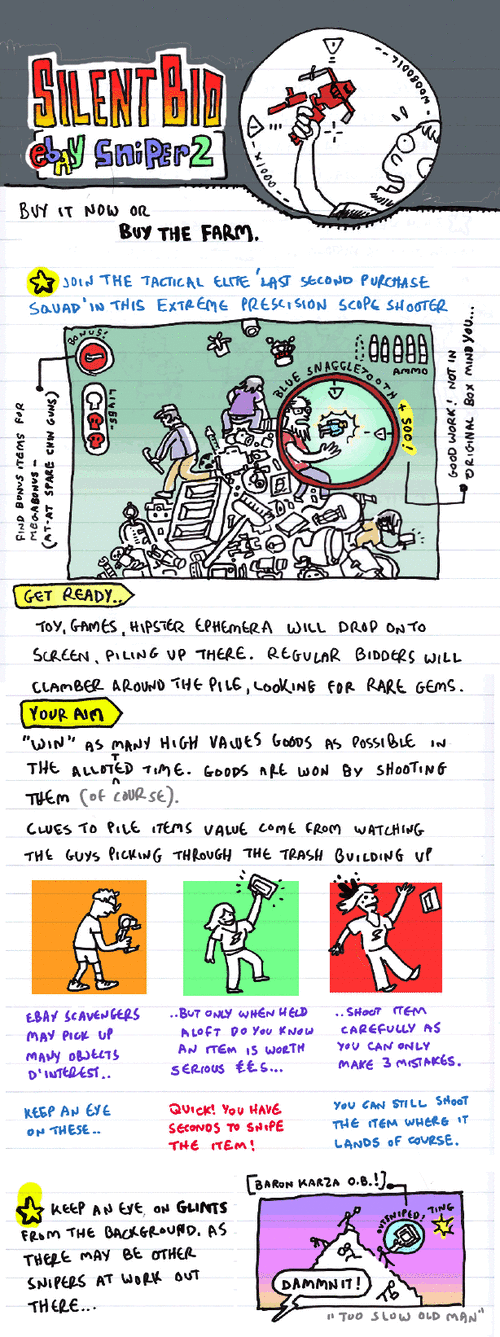 SILENT BID
ebay SNIPER 2
BUY IT NOW OR
BUY THE FARM.
JOIN THE TACTICAL ELITE 'LAST SECOND PURCHASE
SQUAD' IN THIS EXTREME PRESCISION SCOPE SHOOTER
BONUS!
LIVES-
BLUE SNAGGLETOOTH
AMMO
+ 500!
FIND BONUS ITEMS FOR
MEGABONUS -
(AT-AT SPARE CHIN GUNS)
GOOD WORK! NOT IN
ORIGINAL BOX MIND YOU...
GET READY..
TOY, GAMES, HIPSTER EPHEMERA WILL DROP ONTO
SCREEN, PILING UP THERE. REGULAR BIDDERS WILL
CLAMBER AROUND THE PILE, LOOKING FOR RARE GEMS.
YOUR AIM
"WIN" AS MANY HIGH VALUES GOODS AS POSSIBLE IN
THE ALLOTTED TIME. GOODS ARE WON BY SHOOTING
THEM (OF COURSE).
CLUES TO PILE ITEMS VALUE COME FROM WATCHING
THE GUYS PICKING THROUGH THE TRASH BUILDING UP
EBAY SCAVENGERS
MAY PICK UP
MANY OBJECTS
D'INTEREST..
KEEP AN EYE
ON THESE..
..BUT ONLY WHEN HELD
ALOFT DO YOU KNOW
AN ITEM IS WORTH
SERIOUS ££S...
QUICK! YOU HAVE
SECONDS TO SNIPE
THE ITEM!
..SHOOT ITEM
CAREFULLY AS
YOU CAN ONLY
MAKE 3 MISTAKES.
YOU CAN STILL SHOOT
THE ITEM WHERE IT
LANDS OF COURSE.
KEEP AN EYE ON GLINTS
FROM THE BACKGROUND. AS
THERE MAY BE OTHER
SNIPERS AT WORK OUT
THERE...
[BARON KARZA O.B.!]
OUTSNIPED!
TING
DAMMNIT!
"TOO SLOW OLD MAN"